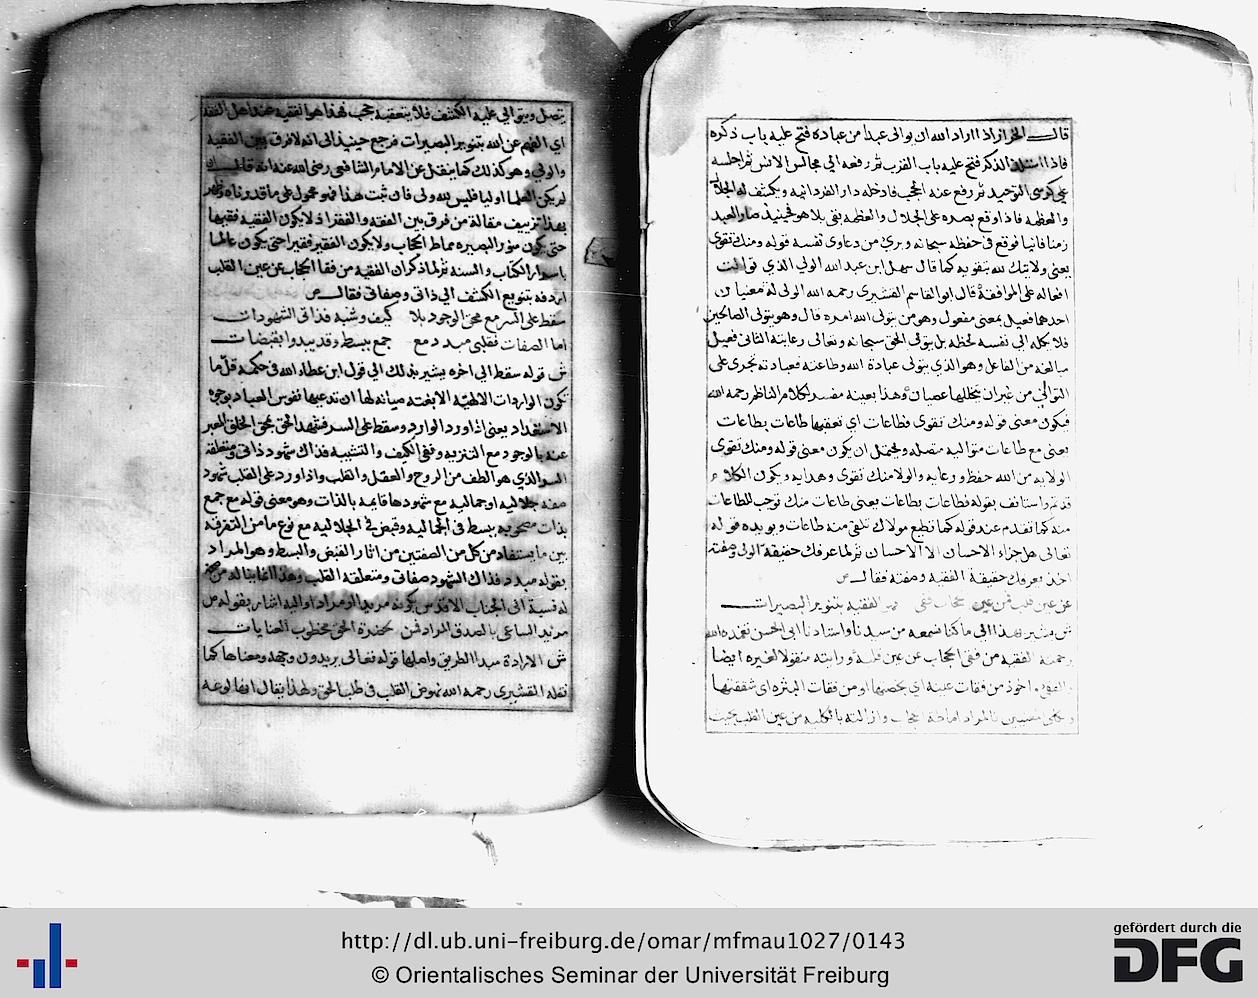 قال الخراز اذا اراد الله ان يوالى عبدا من عباده فتح عليه باب ذكره
فاذا استلذ الذكر فتح عليه باب القرب ثم رفعه الي مجالس الانس ثم اجلسه
على كرسى التوحيد ثم رفع عنه الحجب فادخله دار الفردانيه ويكشف له الجلال
والعظمه فاذا وقع بصره على الجلال والعظمه بقى بلا هو فحينيذ صار العبد
زمنا فانيا فوقع فى حفظه سبحانه وبرئ من دعاوى نفسه قوله ومنك تقوى
يعنى ولايتك لله بتقويه كما قال سهل ابن عبد الله الولي الذي توالت
افعاله على الموافقة قال ابو القاسم القشيرى رحمه الله الولى له معنيان
احدهما فعيل بمعنى مفعول وهو من يتولى الله امره قال وهو يتولى الصالحين
فلا يكله الى نفسه لحظه بل يتولى الحق سبحانه وتعالى رعايته الثانى فعيل
مبالغه من الفاعل وهو الذي يتولى عبادة الله وطاعته فعبادته تجرى على
التوالي من غير ان يتخللها عصيان وهذا بعينه مفسد لكلام الناظر رحمه الله
فيكون معنى قوله ومنك تقوى فطاعات اي تعقبها طاعات بطاعات
يعنى مع طاعات متواليه متصله ويحتمل ان يكون معنى قوله ومنك تقوى
الولايه من الله حفظ ورعايه والولا منك تقوى وهدايه ويكون الكلام
قد تم واستانف بقوله فطاعات بطاعات يعنى طاعات منك توجب للطاعات
منه كما تقدم عند قوله كما تطيع مولاك تلقى منه طاعات ويويده قوله
تعالى هل جزاء الاحسان الا الاحسان ثم لما عرفك حقيقة الولى وصفته
اخذ يعرفك حقيقة الفقيه وصفته فقال ص
عن عين قلب فمن عين حجاب ففى فهو الفقيه بتنوير البصيرات
ش يشير بهذا الى ما كنا نسمعه من سيدنا واستاذنا ابى الحسن تغمده الله
رحمته الفقيه من فقئ الحجاب عن عين قلبه ورايته منقولا لغيره ايضا
والفقيه ماخوذ من فقات عينه اي بخصتها او من فقات البثره اى شققتها
المراد اماطة الحجاب وازالته بالكليه من عين القلب بحيث
يتصل ويتوالي عليه الكشف فلا يتعقبه حجب فهذا هو الفقيه عند اهل الفقه
اي الفهم عن الله بتنوير البصيرات فرجع حينيذ الى انه لا فرق بين الفقيه
والولي وهو كذلك كما ينقل عن الامام الشافعى رضى الله عنه انه قال ان
لم يكن العلما اوليا فليس لله ولى فان ثبت هذا فمحمول على ما قدرناه وظهر
بهذا تزييف مقالة من فرق بين الفقه والفقر اذ لا يكون الفقيه فقيها
حتى يكون منور البصيره مماط الحجاب ولا يكون الفقير فقيرا حتى يكون عالما
باسرار الكتاب والسنه ثم لما ذكر ان الفقيه من فقا الحجاب عن عين القلب
اردفه بتنويع الكشف الي ذاتى وصفاتى فقال ص
سقط على السر مع محق الوجود بلا كيف وشبه فذاتى الشهودات
اما الصفات فقلبى مبدد مع جمع ببسط وقد يبدو ابقبضات
ش قوله سقط الى اخره يشير بذلك الى قول ابن عطاء الله فى حكمه قل ما
تكون الواردات الالهيه الا بغته صيانه لها ان تدعيها نفوس العباد بوجود
الاستعداد يعنى اذا ورد الوارد وسقط على السر فشهد الحق محق الخلق المعبر
عنه بالوجود مع التنزيه ونفى الكيف والتشبيه فذاك شهود ذاتى ومتعلقه
السر الذي هو الطف من الروح والعقل والقلب واذا ورد على القلب شهود
صفه جلاليه او جماليه مع شهودها قايمه بالذات وهو معنى قوله مع جمع
بذات مصحوبه ببسط فى الجماليه وقبض فى الجلاليه مع نوع ما من التفرقه
بين ما يستفاد من كل من الصفتين من اثار القبض والبسط وهو المراد
بقوله مبدد فذاك الشهود صفاتى ومتعلقه القلب وهذا انما يناله من صح
له نسبة الى الجناب الاقدس بكونه مريد او مراد واليه اشار بقوله ص
مريد الساعى بالصدق المراد فمن لحضرة الحق مخطوب العنايات
ش الارادة مبدا الطريق واصلها قوله تعالى يريدون وجهه ومعناها كما
نقله القشيرى رحمه الله نهوض القلب فى طلب الحق ولهذا يقال انها لوعه
http://dl.ub.uni-freiburg.de/omar/mfmau1027/0143
© Orientalisches Seminar der Universität Freiburg
gefördert durch die
DFG